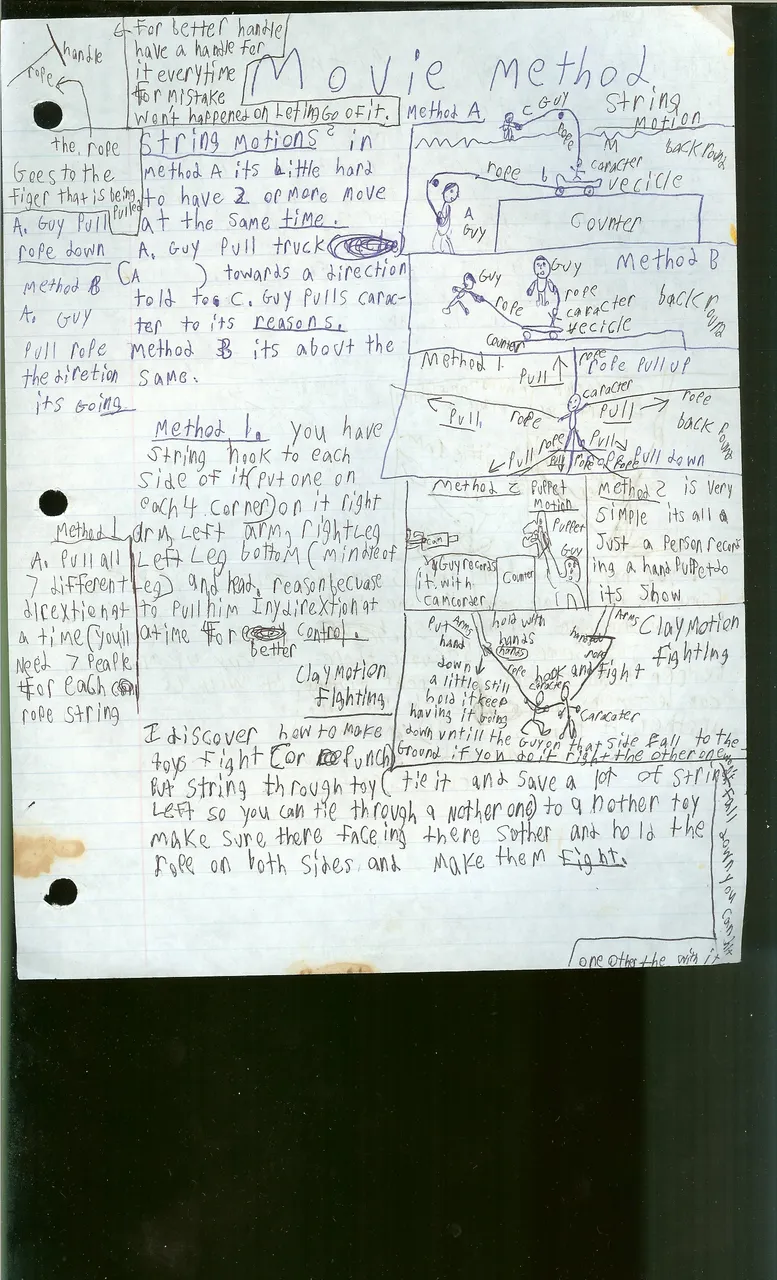 Movie Method
handle
rope
For better handle
have a handle for
it everytime
for mistake
won't happened on Leting Go of it.
the rope
Goes to the
figer that is being
Pulled
A. Guy Pull
rope down
Method B
A. Guy
Pull rope
the diretion
its Going
String Motions 2 in
Method A its Little hard
to have 2 or more move
at the same time.
A. Guy Pull truck
(A ) towards a direction
told to. C. Guy Pulls carac-
ter to its reasons.
Method B its about the
same.
Method A
String
Motion
C Guy
rope
caracter
back round
rope
b
vecicle
A
Guy
Counter
Method B
Guy
Guy
rope
rope
caracter
vecicle
back round
counter
Method 1.
Pull
rope
rope Pull up
caracter
Pull
rope
Pull
rope
back round
Pull
rope
Pull
Pull
rope
Pull down
Method 1. you have
String hook to each
side of it (Put one on
each 4 corner) on it right
arm, Left arm, right Leg
Left Leg bottom (mindteof
Leg) and head. reason becuase
to Pull him In ydirextion at
atime for control.
better
Method 1
A. Pull all
7 different
dirextion at
a time (you'll
need 7 People
for each
rope string
Method 2
Puppet
Motion
cam
Puppet
Guy
Guy records
it with
camcorder
Counter
Method 2 is very
simple its all
Just a Person record
ing a hand Puppet do
its show
Clay Motion
Fighting
Put Arms
hand
down
a little still
hold it keep
having it going
down untill the Guy on that side fall to the
Ground if you do it right the other one
hold with
hands
hands
rope
hook and fight
caracter
Arms
rope
Caracater
Clay Motion
Fighting
I discover how to make
toys Fight (or Punch)
Put String through toy (tie it and save a lot of string
Left so you can tie through a nother one) to a nother toy
make sure there faceing there sother and hold the
rope on both sides and make them Fight.
fall down you can hit
one other the with it